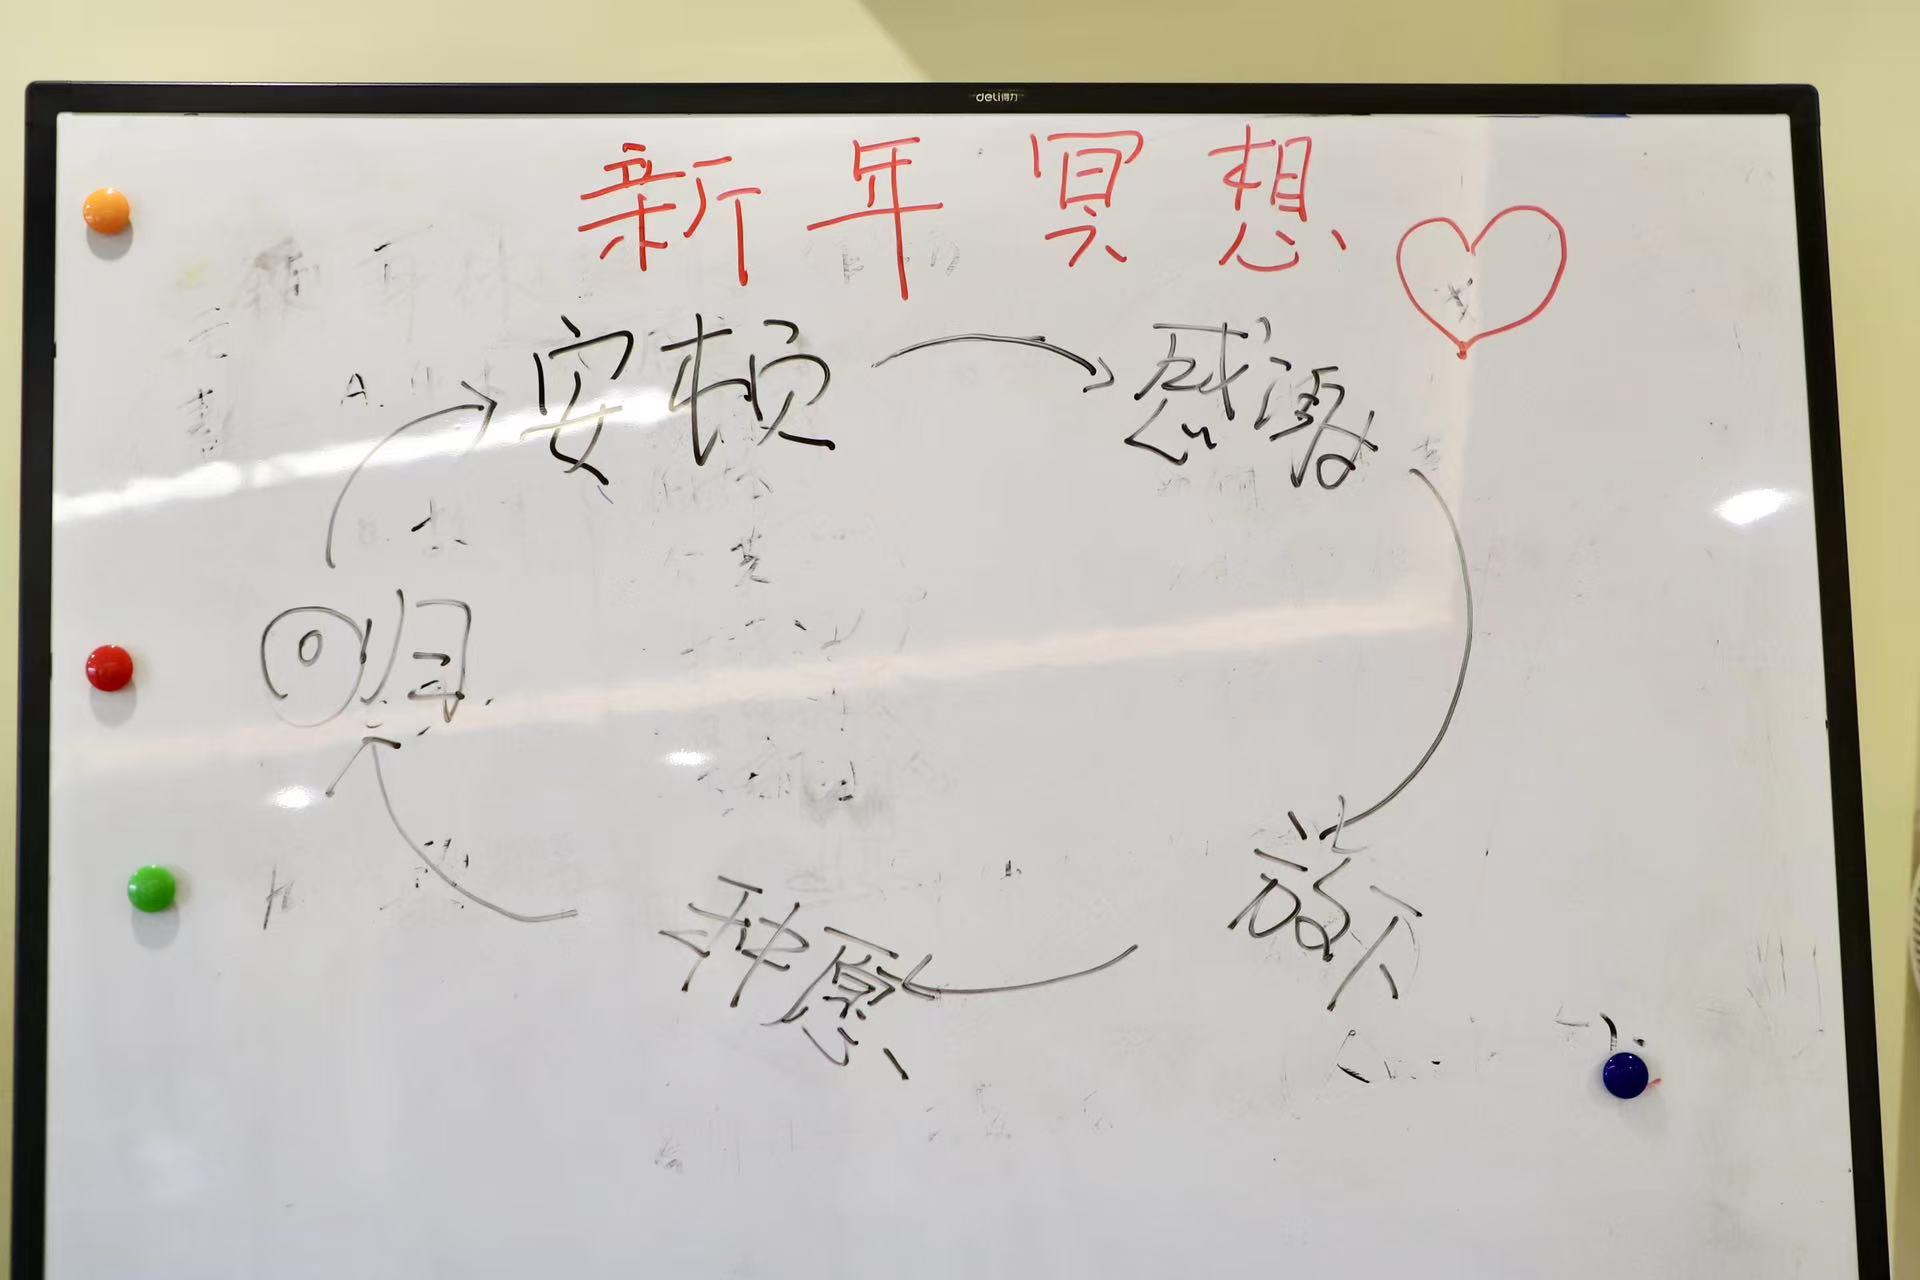 deli得力
新年冥想
安顿
感谢
回归
放下
种愿